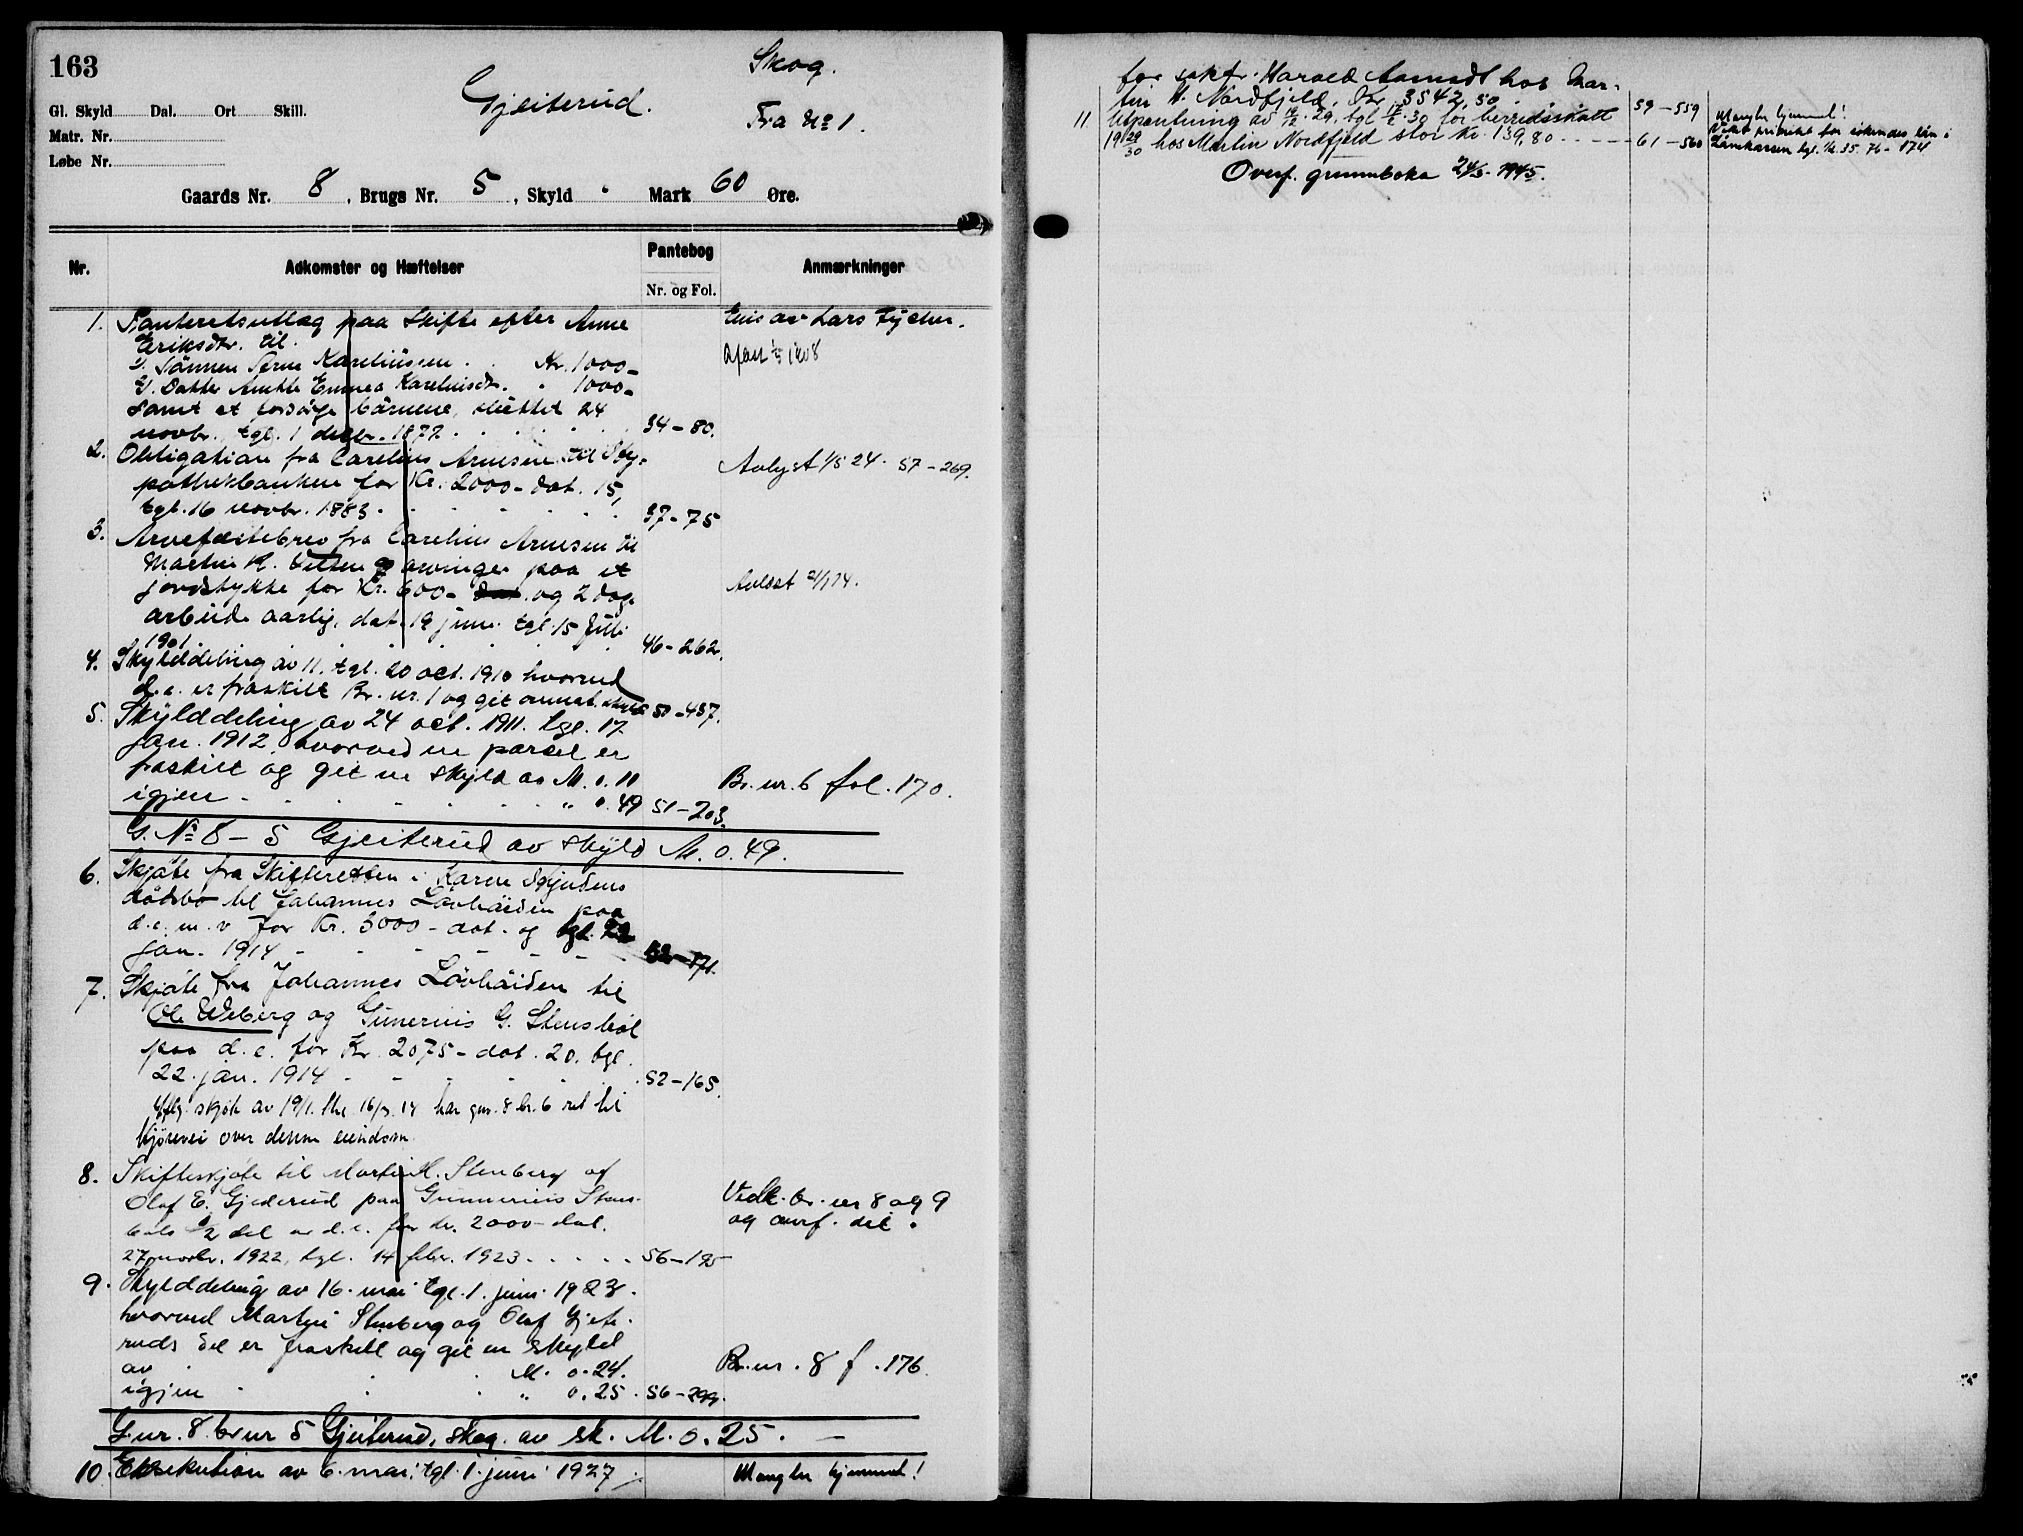 163
Skog.
Gjeiterud.
Fra No 1.
Gl. Skyld Dal. Ort Skill.
Matr. Nr.
Løbe Nr.
Gaards Nr. 8, Brugs Nr. 5, Skyld " Mark 60 Øre.
Nr. Adkomster og Hæftelser Pantebog Anmærkninger
Nr. og Fol.
1. Panteretsutlæg paa skifte efter Anne
Eriksdtr. til
1. Sönnen Arne Kareliussen . . Kr. 1000-
2. Datter Emma Kareliusdtr. " 1000-
samt at forsörge börnene, sluttet 24
novbr. tgl. 1 decbr. 1877. 34-80.
2. Obligation fra Carelius Arnesen til Hy-
pothekbanken for Kr. 2000- dat. 15,
tgl. 16 novbr. 1883. 37-75
Avlyst 1/5 24. 57-269.
3. Arvefæstebrev fra Carelius Arnesen til
Martin K. og arvinger paa et
jordstykke for Kr. 600- og 2 dags
arbeide aarlig, dat. 19 juni tgl. 15 juli
1901. 46-262.
Avløst
4. Skylddeling av 11. tgl. 20 oct. 1910 hvorved
d.e. er fraskilt Br. nr. 1 og git annet. skyld 50-437.
5. Skylddeling av 24 oct. 1911. tgl. 17
jan. 1912 hvorved en parcel er
fraskilt og git en skyld av M. 0.11
igjen " 0.49 51-203.
Br. nr. 6 fol. 170.
G. No 8-5 Gjeiterud av skyld M. 0.49.
6. Skjøte fra Skifteretten i Karen
dödsbo til Johannes Lövhöiden paa
d.e. m.v. for Kr. 3000- dat. og tgl. 22
jan. 1914 52-171.
7. Skjøte fra Johannes Lövhöiden til
Ole Weberg og Gunerius G. Stensböl
paa d.e. for Kr. 2075- dat. 20. tgl.
22. jan. 1914 52-165.
Iflg. skjøte av 19/1. thl. 16/3. 14 har gnr. 8 br. 6 ret til
kjørevei over denne eiendom.
8. Skifteskjøte til Martin M. Stenberg og
Olaf E. Gjeiterud paa Gunnerius Stens-
böls 1/2 del av d.e. for kr. 2000- dat.
27 novbr. 1922, tgl. 14 febr. 1923 56-195
Vedk. br. nr 8 og 9
og overf. dit.
9. Skylddeling av 16. mai tgl. 1. juni 1923.
hvorved Martin Stenberg og Olaf Gjeite-
ruds del er fraskilt og git en skyld
av M. 0.24.
igjen " 0.25. 56-299.
Br. nr. 8 f. 176.
G.nr. 8 br nr 5 Gjeiterud, skog. av sk. M. 0.25.
10. Eksekution av 6. mai, tgl. 1. juni 1927 Mangler hjemmel!
for sakfr. Harald Aamodt hos Mar-
tin H. Nordfjeld, Kr. 3542,50 59-559
11. Utpantning av 19/12. 29, tgl 17/2 30 for herredsskatt Mangler hjemmel!
19 29/30 hos Martin Nordfjeld stor Kr. 139,80 61-560
Viker prioritet for lån i
Lånekassen tgl. 35. 76-174
Overf. grunnboka 24/5-1945.